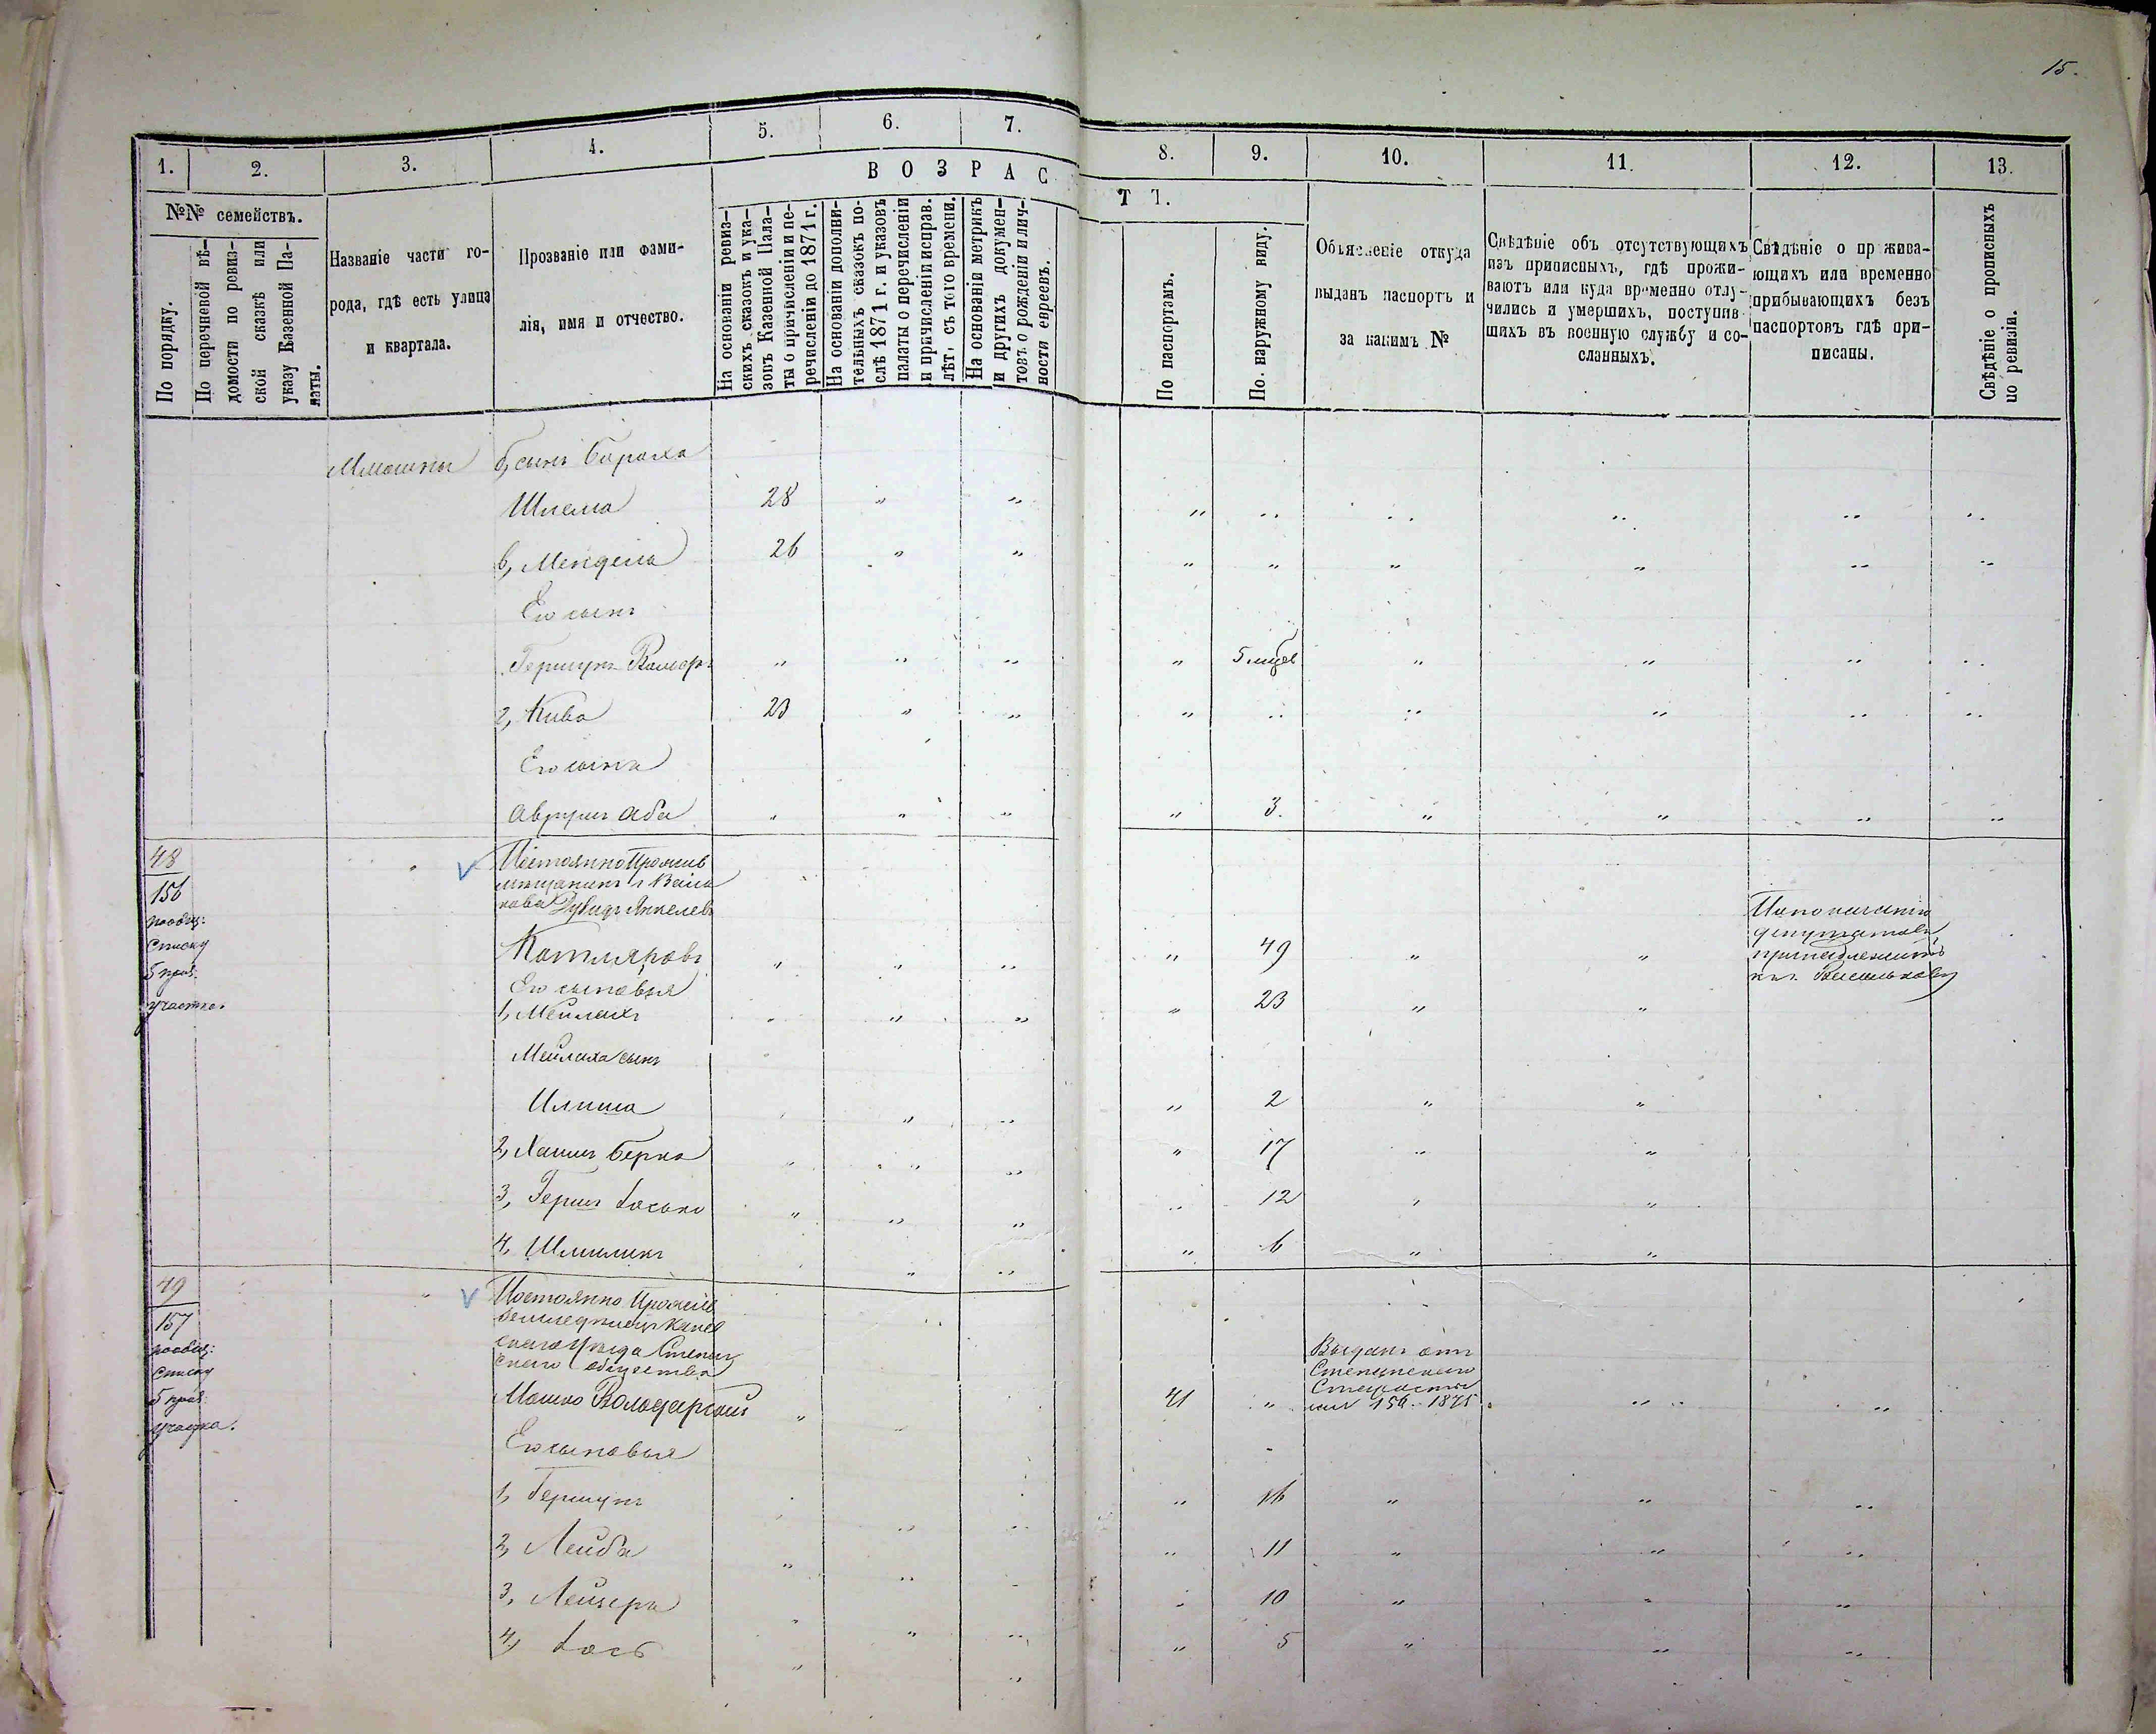 15.
1.
2.
3.
4.
5.
6.
7.
8.
9.
10.
11.
12.
13.
№№ семействъ.
По порядку.
По перечневой вѣ-
домости по ревиз-
ской сказкѣ или
указу Казенной Па-
латы.
Названіе части го-
рода, гдѣ есть улица
и квартала.
Прозваніе или фами-
лія, имя и отчество.
ВОЗРАС
ТЪ.
На основаніи ревиз-
скихъ сказокъ и ука-
зовъ Казенной Пала-
ты о причисленіи и пе-
речисленіи до 1871 г.
На основаніи дополни-
тельныхъ сказокъ по-
слѣ 1871 г. и указовъ
палаты о перечисленіи
и причисленіи исправ.
лѣт, съ того времени.
На основаніи метрикъ
и другихъ докумен-
товъ о рожденіи и лич-
ности евреевъ.
По паспортамъ.
По наружному виду.
Объясненіе откуда
выданъ паспортъ и
за какимъ №
Свѣдѣніе объ отсутствующихъ
изъ приписныхъ, гдѣ прожи-
ваютъ или куда временно отлу-
чились и умершихъ, поступив-
шихъ въ военную службу и со-
сланныхъ.
Свѣдѣніе о прожива-
ющихъ или временно
прибывающихъ безъ
паспортовъ гдѣ при-
писаны.
Свѣдѣніе о прописныхъ
по ревизіи.
Мошки б, сынъ Бороха
Шлема 28 " " " " " " " "
в, Мендель 26 " " " " " " " "
Его сынъ
Гершунъ " " " " 5 мѣс " " " "
г, Кива 23 " " " " " " " "
Его сынъ
Аврумъ Аба " " " " 3. " " " "
48
156
по общ:
списку
5 при:
участка.
Постоянно Прожив
мѣщанинъ г. Василь
кова Дувидъ Янкелевъ
Котляровъ " " " " 49 " "
По показанію
депутатовъ
принадлежитъ
къ г. Василькову
Его сыновья
1, Мейлахъ " " " " 23 " "
Мейлаха сынъ
Илиша " " " " 2 " "
2, Хаимъ Берко " " " " 17 " "
3, Гершъ Іосько " " " " 12 " "
4, Шмиликъ " " " " 6 " "
49
157
по общ:
списку
5 при:
участка.
Постоянно Прожив
земледѣлецъ Канев
скаго уѣзда Степан
скаго общества
Мошко Володарскій " 41 " " "
Выданъ отъ
Старосты
1875
Его сыновья
1, Гершунъ " " " 16 " " "
2, Лейба " " " 11 " " "
3, Лейзеръ " " " 10 " " "
4, Іось " " " 5 " " "